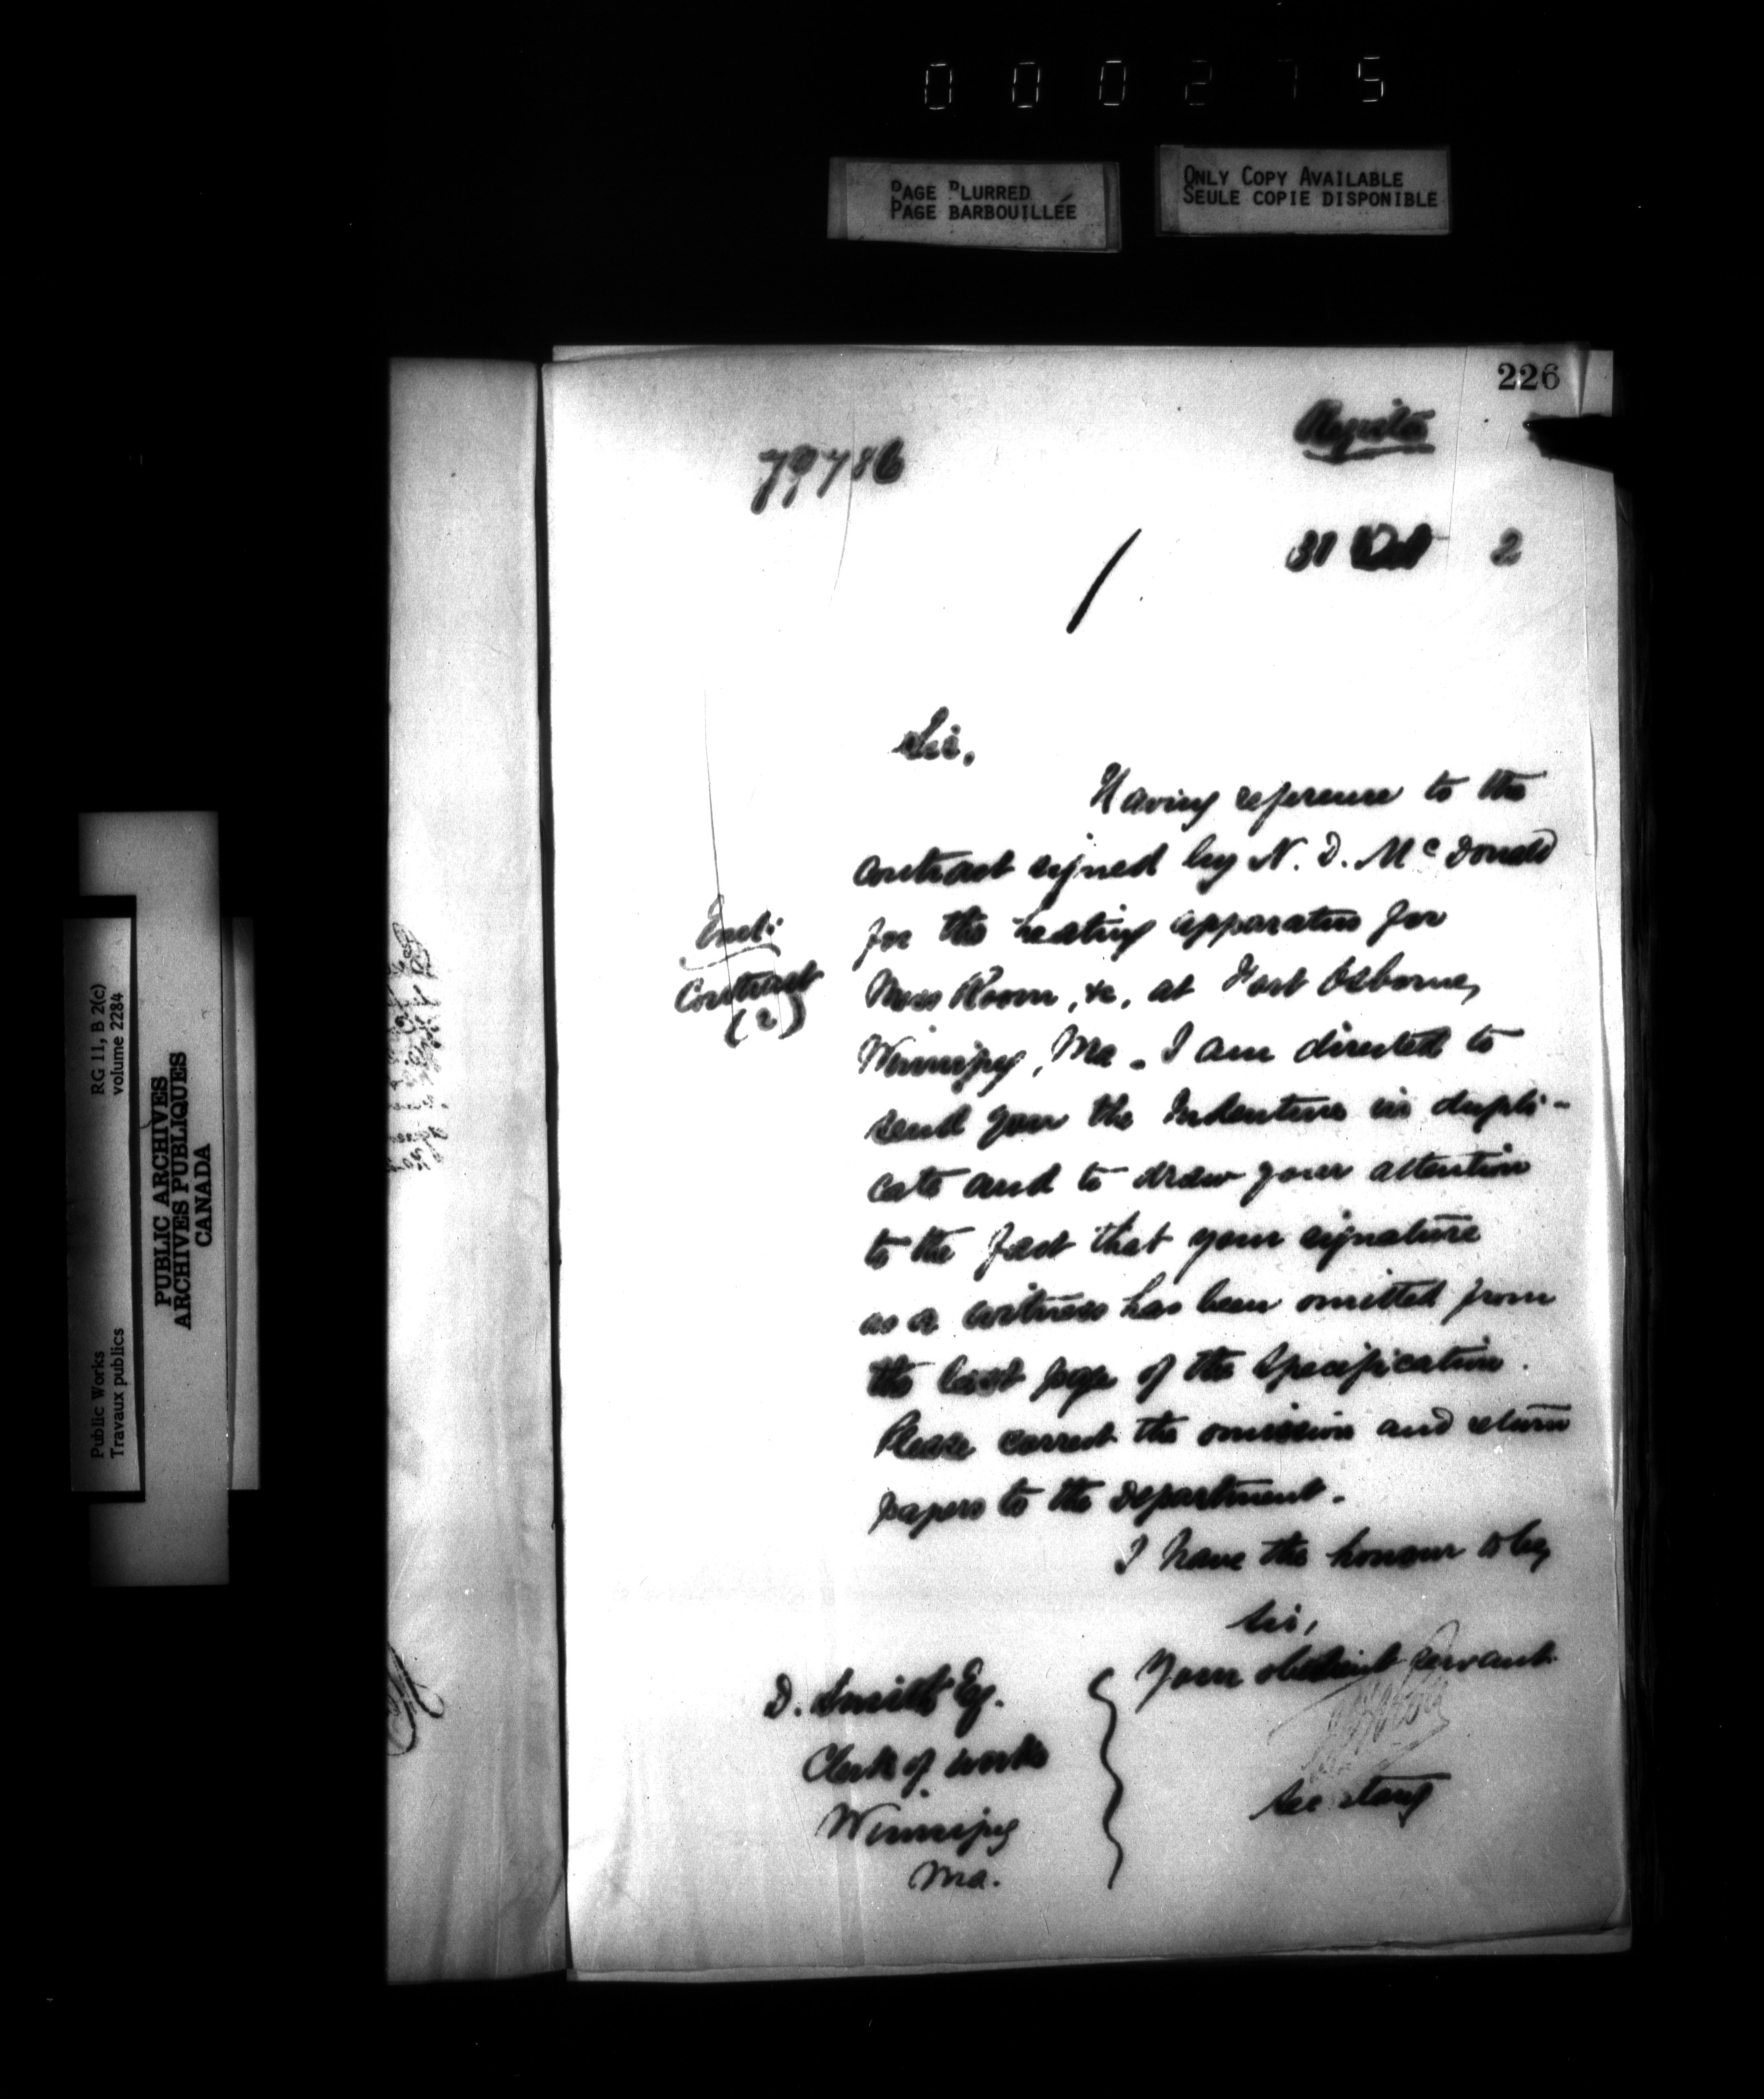 000275
PAGE BLURRED
PAGE BARBOUILLÉE
ONLY COPY AVAILABLE
SEULE COPIE DISPONIBLE
226
79786
31 Oct 2
Sir,
Having reference to the
contract signed by N. D. McDonald
for the heating apparatus for
Mess Room, &c, at Fort Osborne,
Winnipeg, Ma. I am directed to
send you the Indenture in dupli-
cate and to draw your attention
to the fact that your signature
as a witness has been omitted from
the last page of the Specification.
Please correct the omission and return
papers to the Department.
Encl:
Contract
(2)
I have the honour to be,
Sir,
Your obedient servant
Secretary
D. Smith Esq.
Clerk of Works
Winnipeg
Ma.
Public Works
Travaux publics
RG 11, B 2(c)
volume 2284
PUBLIC ARCHIVES
ARCHIVES PUBLIQUES
CANADA